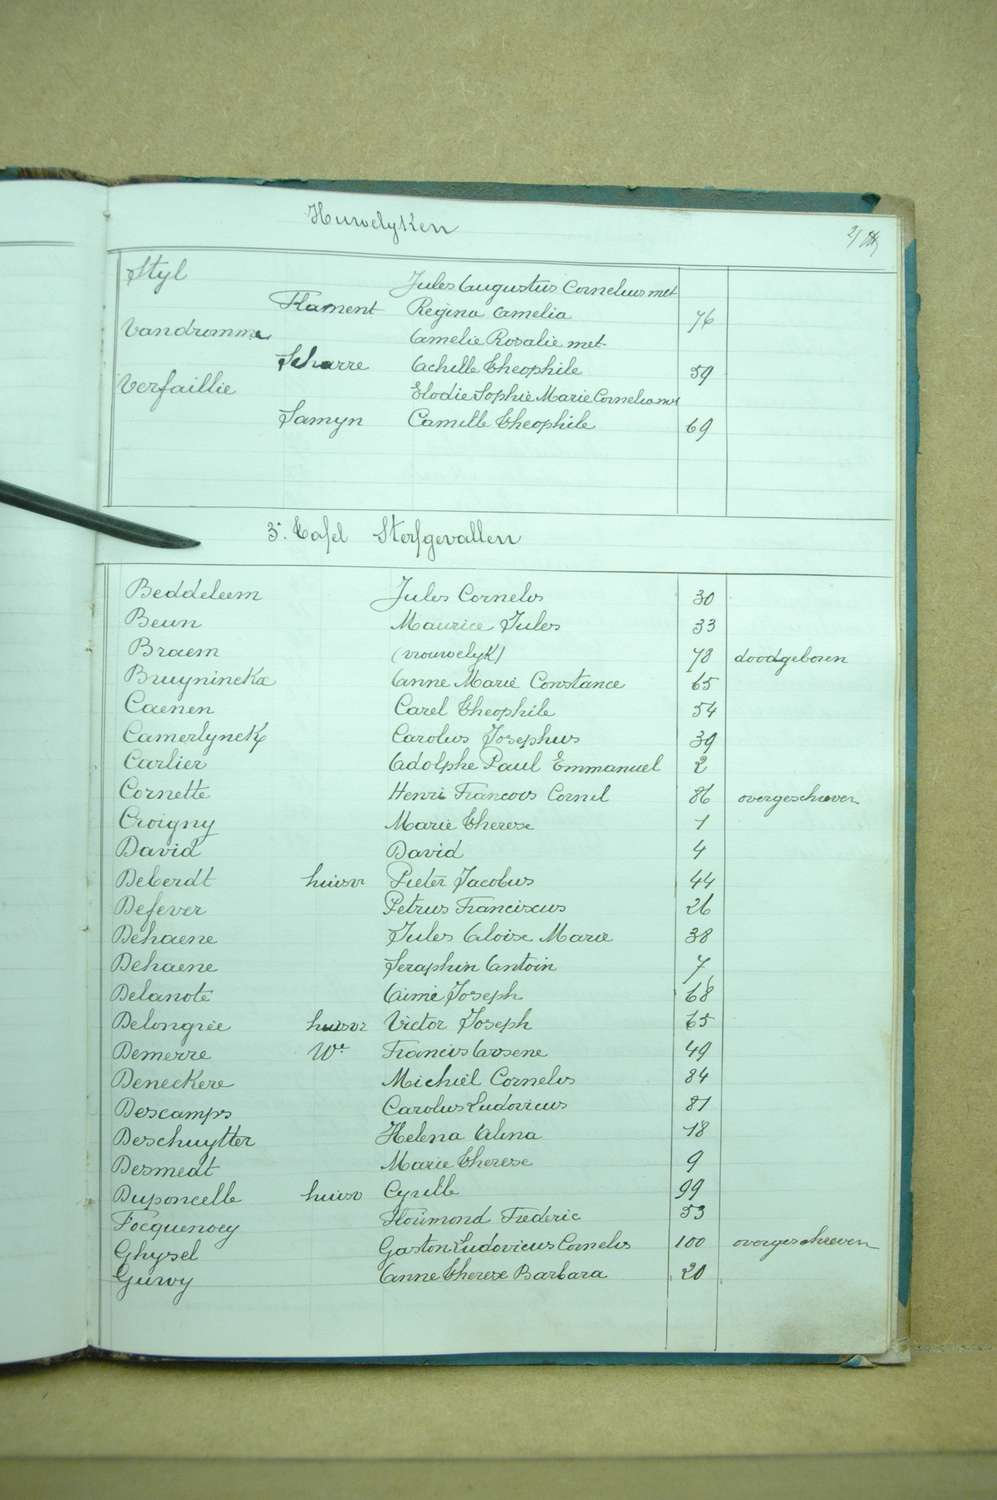 Huwelyken
2/
Styl Jules Augustus Cornelius met
Flament Regina Camelia 76
Vandromme Amelie Rosalie met
Scharre Achille Theophile 59
Verfaillie Elodie Sophie Marie Cornelia met
Samyn Camille Theophile 69
3e Tafel Sterfgevallen
Beddeleem Jules Cornelis 30
Beun Maurice Jules 33
Braem (vrouwelyk) 78 doodgeboren
Bruyninckx Anne Marie Constance 65
Caenen Carel Theophile 54
Camerlynck Carolus Josephus 39
Carlier Adolphe Paul Emmanuel 2
Cornette Henri Francois Cornel 86 overgeschreven
Croigny Marie Therese 1
David David 4
Deberdt huisvr Pieter Jacobus 44
Defever Petrus Franciscus 26
Dehaene Jules Aloise Marie 38
Dehaene Seraphin Antoin 7
Delanote Aimé Joseph 68
Delongrée huisvr Victor Joseph 65
Demerre We Francis Arsene 49
Deneckere Michiel Cornelis 84
Descamps Carolus Ludovicus 81
Deschuytter Helena Alina 18
Desmedt Marie Therese 9
Duponcelle huisv Cyrille 99
Focquenoey Florimond Frederic 53
Ghysel Gaston Ludovicus Cornelis 100 overgeschreven
Guwy Anne Therese Barbara 20